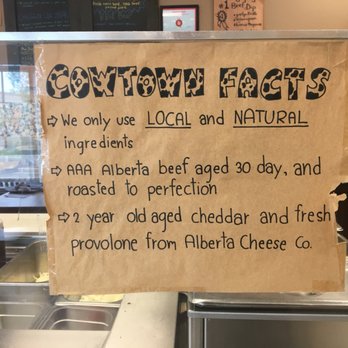 COWTOWN FACTS
⇨ We only use LOCAL and NATURAL
ingredients
⇨ AAA Alberta beef aged 30 day, and
roasted to perfection
⇨ 2 year old aged cheddar and fresh
provolone from Alberta Cheese Co.